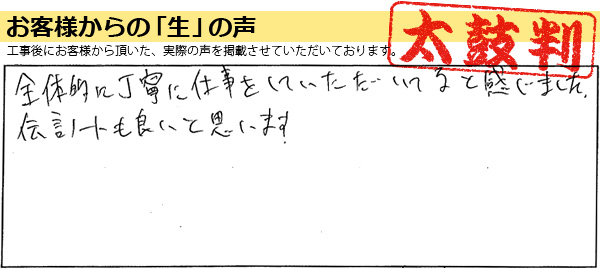 お客様からの「生」の声
太鼓判
工事後にお客様から頂いた、実際の声を掲載させていただいております。
全体的に丁寧に仕事をしていただいてると感じました。
伝言ノートも良いと思います